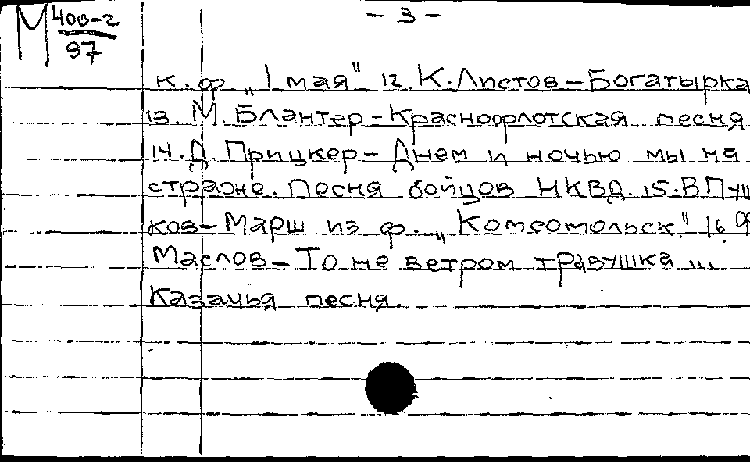 М 400-2
97
- 3 -
к. ф. „1 мая" 12. К. Листов - Богатырка
13. М. Блантер - Краснофлотская песня
14. Д. Прицкер - Днем и ночью мы на
страже. Песня бойцов НКВД. 15. В. Пуш
ков - Марш из ф. „Комсомольск" 16.
Маслов - То не ветром травушка...
Казачья песня.